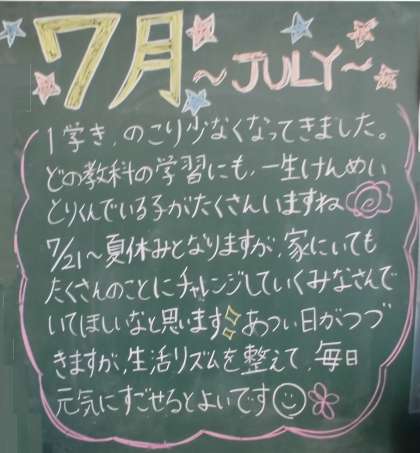 7月
～JULY～
1学き、のこり少なくなってきました。
どの教科の学習にも、一生けんめい
とりくんでいる子がたくさんいますね
7/21～夏休みとなりますが、家にいても
たくさんのことにチャレンジしていくみなさんで
いてほしいなと思います あつい日がつづ
きますが、生活リズムを整えて、毎日
元気にすごせるとよいです